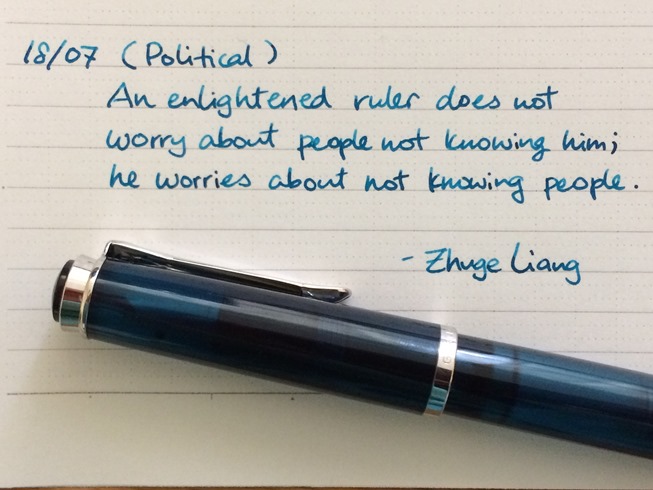 18/07 (Political)
An enlightened ruler does not
worry about people not knowing him;
he worries about not knowing people.
- Zhuge Liang